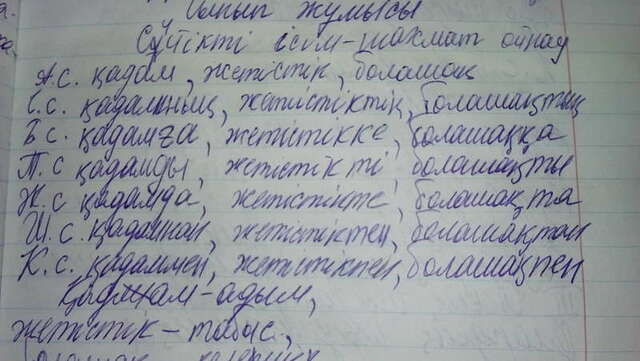 Сынып жұмысы
Сүйікті ісім-шахмат ойнау
А.с. қадам, жетістік, болашақ
І.с. қадамның, жетістіктің, болашақтың
Б.с. қадамға, жетістікке, болашаққа
Т.с қадамды, жетістікті, болашақты
Ж.с қадамда, жетістікте, болашақта
Ш.с. қадамнан, жетістіктен, болашақтан
К.с. қадаммен, жетістікпен, болашақпен
Қадам-адым,
жетістік-табыс,